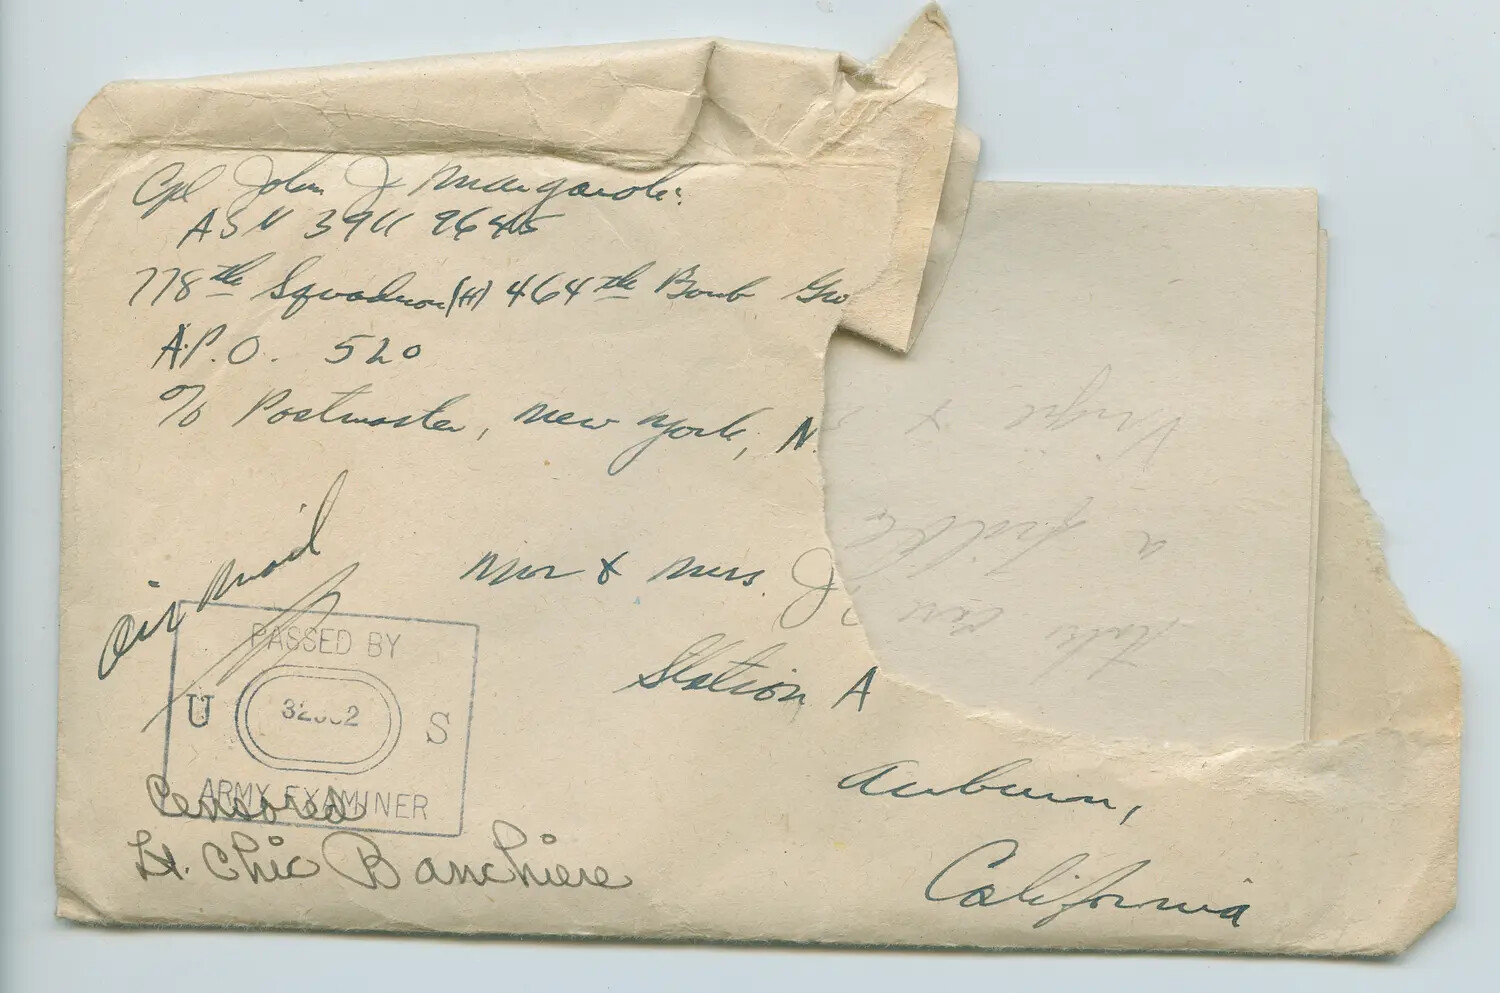 Cpl John J Margaroli
ASN 3911 9645
778th Squadron (H) 464th Bomb Gro
A.P.O. 520
c/o Postmaster, New York, N.
Air Mail
Mr & Mrs. J
Station A
Auburn,
California
PASSED BY
U S
ARMY EXAMINER
Censored
Lt. Chic Banchiere
a